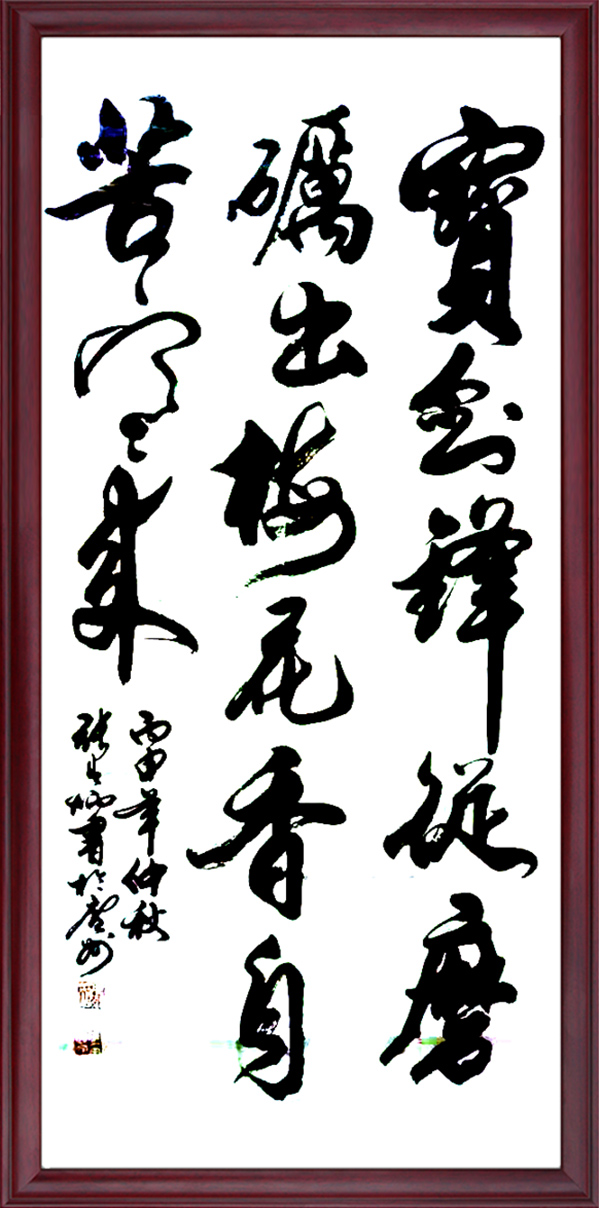 寶劍鋒從磨
礪出梅花香自
苦寒來
丙申年仲秋
張生灿書於廣州